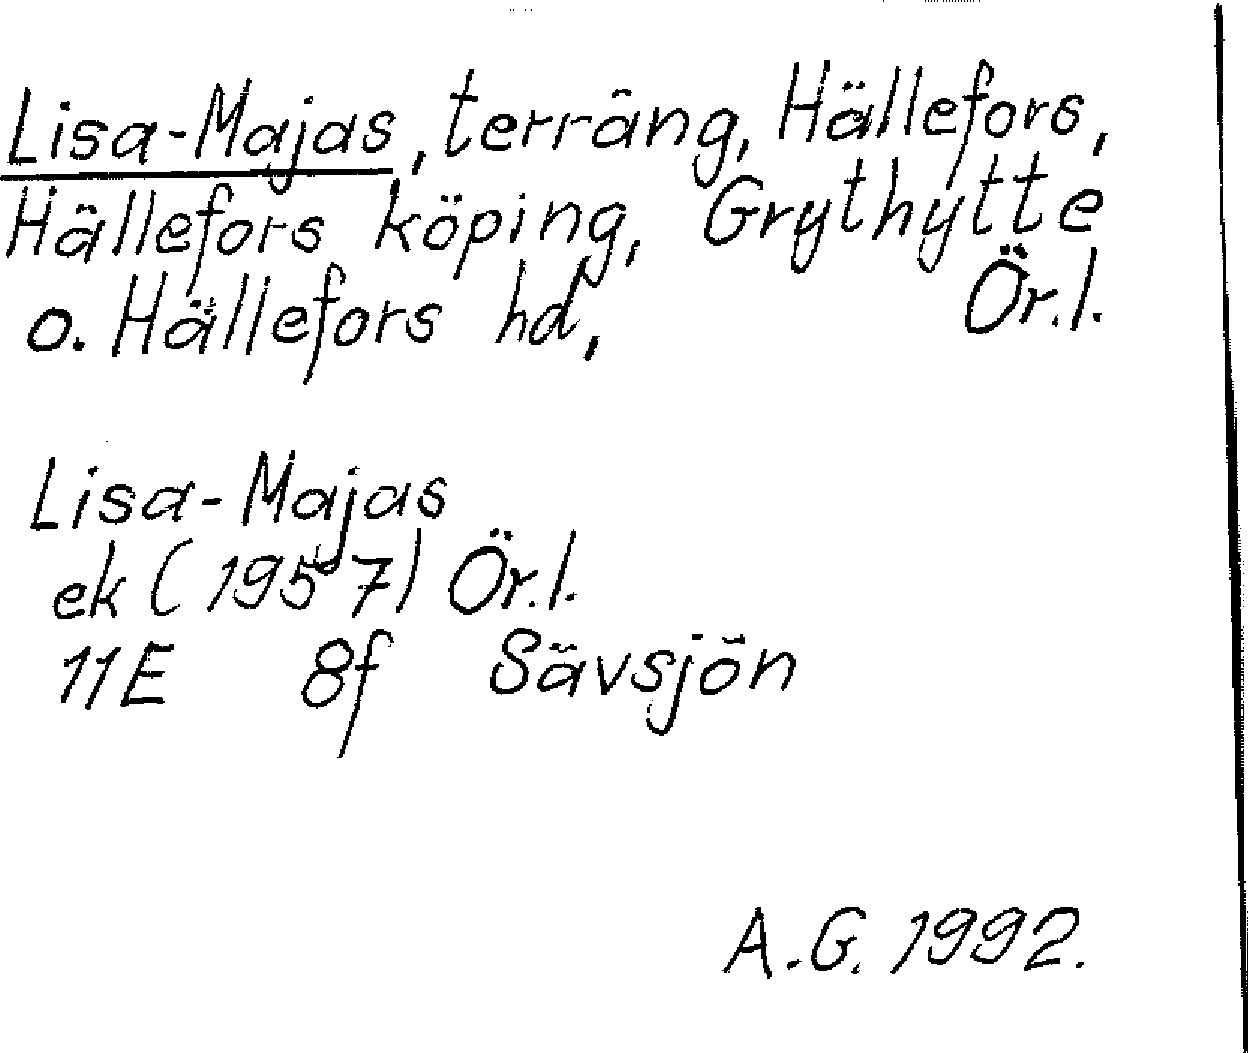 Lisa-Majas, terräng, Hällefors,
Hällefors köping, Grythytte
o. Hällefors hd, Ör.l.
Lisa-Majas
ek (1957) Ör.l.
11E 8f Sävsjön
A.G. 1992.